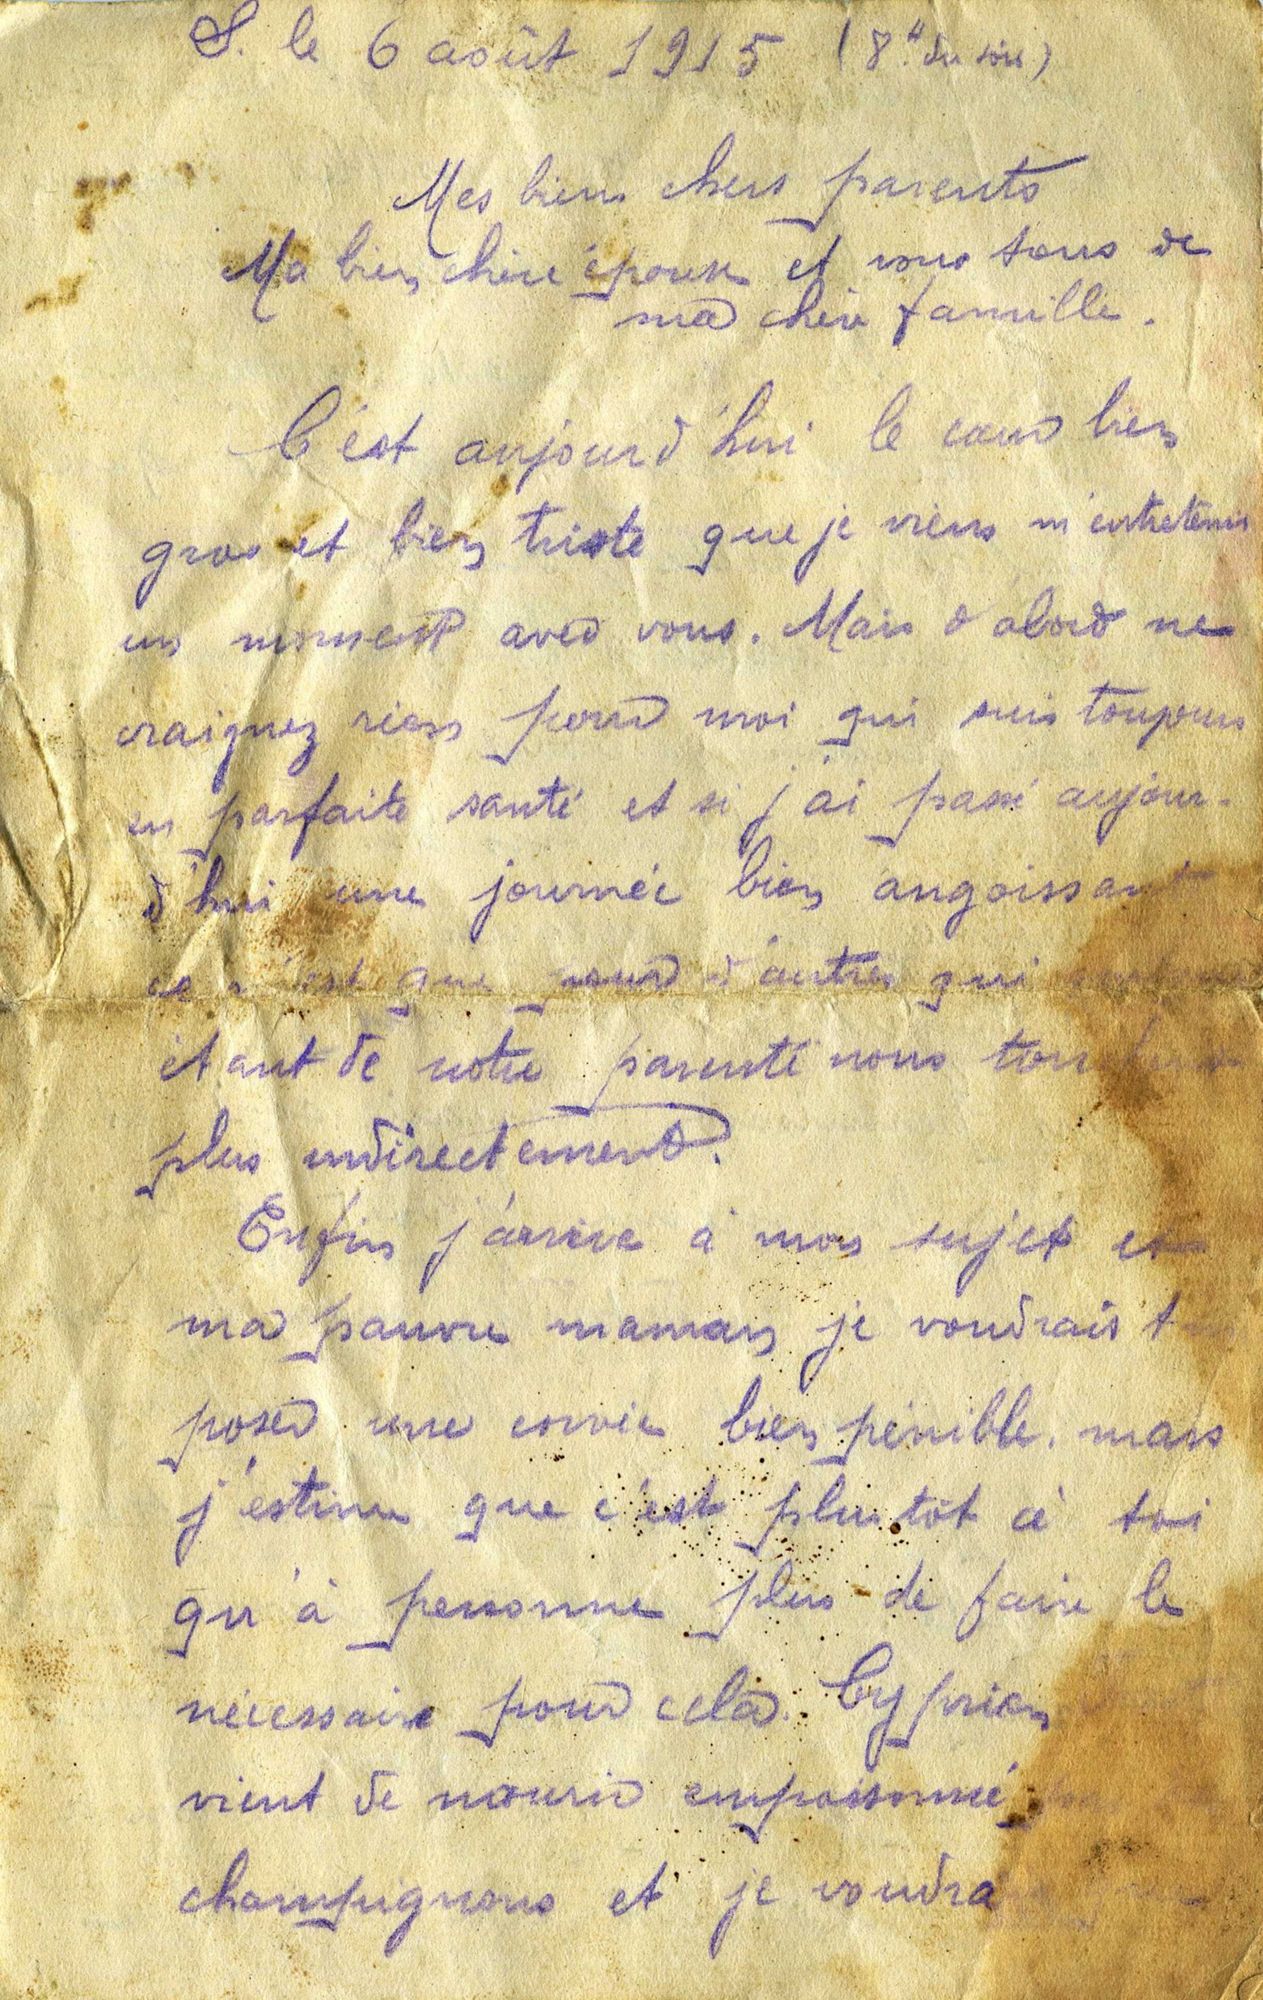 S. le 6 août 1915 (8h du soir)
Mes bien chers parents
Ma bien chère épouse et vous tous de
ma chère famille.
C'est aujourd'hui le cœur bien
gros et bien triste que je viens m'entretenir
un moment avec vous. Mais d'abord ne
craignez rien pour moi qui suis toujours
en parfaite santé et si j'ai passé aujour-
d'hui une journée bien angoissante
ce n'est que pour d'autres qui
étant de notre parenté nous
plus indirectement.
Enfin j'arrive à mon sujet et
ma pauvre maman je voudrais
poser une corvée bien pénible. mais
j'estime que c'est plutôt à toi
qu'à personne plus de faire le
nécessaire pour cela. Cyprien
vient de mourir empoisonné
champignons et je voudrais